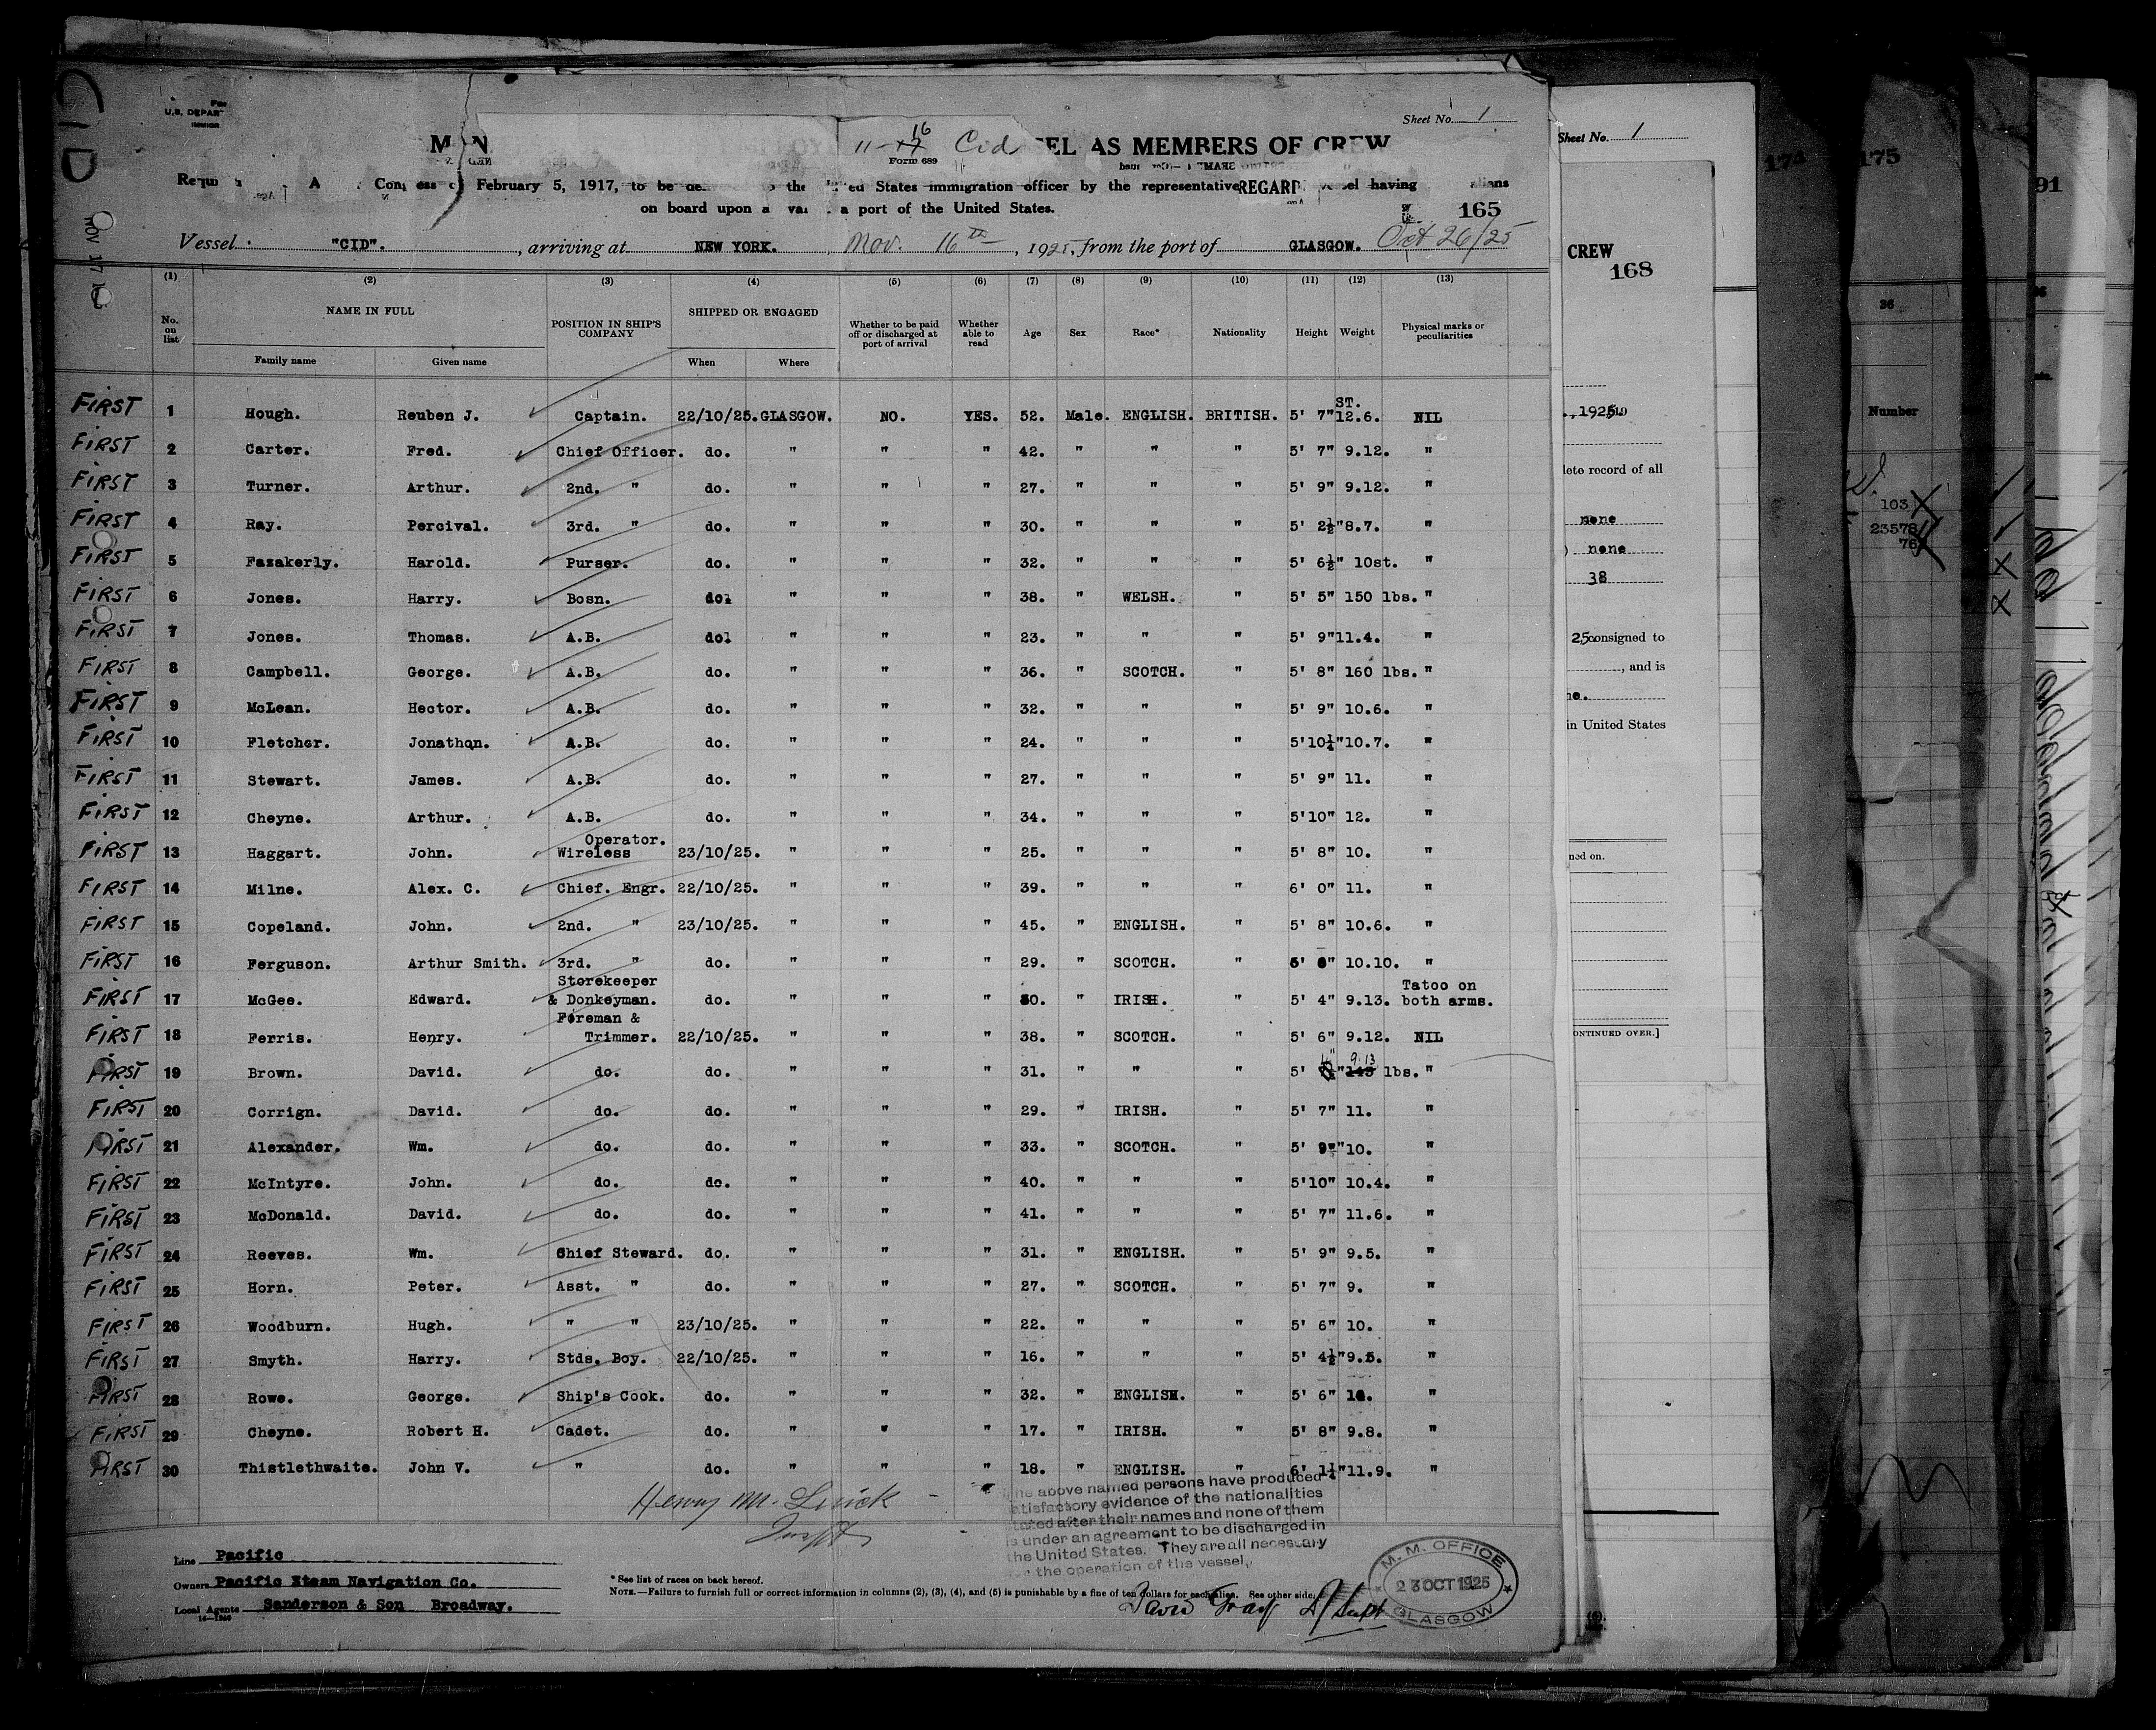 CID
U.S. DEPAR
Sheet No. 1
11-17 16 Cid
Form 689
EL AS MEMBERS OF CREW
February 5, 1917, to be
the United States immigration officer by the representative REGARD vessel having aliens
on board upon a port of the United States.
165
NOV 17
Vessel "CID"., arriving at NEW YORK. Nov. 16th, 1925, from the port of GLASGOW. Oct 26/25
(1) (2) (3) (4) (5) (6) (7) (8) (9) (10) (11) (12) (13)
No. on list NAME IN FULL Family name Given name POSITION IN SHIP'S COMPANY SHIPPED OR ENGAGED When Where Whether to be paid off or discharged at port of arrival Whether able to read Age Sex Race* Nationality Height Weight Physical marks or peculiarities
FIRST 1 Hough. Reuben J. Captain. 22/10/25. GLASGOW. NO. YES. 52. Male. ENGLISH. BRITISH. 5' 7" ST. 12.6. NIL
FIRST 2 Carter. Fred. Chief Officer. do. " " " 42. " " " 5' 7" 9.12. "
FIRST 3 Turner. Arthur. 2nd. " do. " " " 27. " " " 5' 9" 9.12. "
FIRST 4 Ray. Percival. 3rd. " do. " " " 30. " " " 5' 2½" 8.7. "
FIRST 5 Fazakerly. Harold. Purser. do. " " " 32. " " " 5' 6½" 10st. "
FIRST 6 Jones. Harry. Bosn. do. " " " 38. " WELSH. " 5' 5" 150 lbs. "
FIRST 7 Jones. Thomas. A.B. do. " " " 23. " " " 5' 9" 11.4. "
FIRST 8 Campbell. George. A.B. do. " " " 36. " SCOTCH. " 5' 8" 160 lbs. "
FIRST 9 McLean. Hector. A.B. do. " " " 32. " " " 5' 9" 10.6. "
FIRST 10 Fletcher. Jonathon. A.B. do. " " " 24. " " " 5'10½" 10.7. "
FIRST 11 Stewart. James. A.B. do. " " " 27. " " " 5' 9" 11. "
FIRST 12 Cheyne. Arthur. A.B. do. " " " 34. " " " 5'10" 12. "
FIRST 13 Haggart. John. Wireless Operator. 23/10/25. " " " 25. " " " 5' 8" 10. "
FIRST 14 Milne. Alex. C. Chief. Engr. 22/10/25. " " " 39. " " " 6' 0" 11. "
FIRST 15 Copeland. John. 2nd. " 23/10/25. " " " 45. " ENGLISH. " 5' 8" 10.6. "
FIRST 16 Ferguson. Arthur Smith. 3rd. " do. " " " 29. " SCOTCH. " 10.10. "
FIRST 17 McGee. Edward. Storekeeper & Donkeyman. do. " " " 30. " IRISH. " 5' 4" 9.13. Tatoo on both arms.
FIRST 18 Ferris. Henry. Foreman & Trimmer. 22/10/25. " " " 38. " SCOTCH. " 5' 6" 9.12. NIL
FIRST 19 Brown. David. do. do. " " " 31. " " " 5' 9.13 145 lbs. "
FIRST 20 Corrign. David. do. do. " " " 29. " IRISH. " 5' 7" 11. "
FIRST 21 Alexander. Wm. do. do. " " " 33. " SCOTCH. " 5' 9" 10. "
FIRST 22 McIntyre. John. do. do. " " " 40. " " " 5'10" 10.4. "
FIRST 23 McDonald. David. do. do. " " " 41. " " " 5' 7" 11.6. "
FIRST 24 Reeves. Wm. Chief Steward. do. " " " 31. " ENGLISH. " 5' 9" 9.5. "
FIRST 25 Horn. Peter. Asst. " do. " " " 27. " SCOTCH. " 5' 7" 9. "
FIRST 26 Woodburn. Hugh. " " 23/10/25. " " " 22. " " " 5' 6" 10. "
FIRST 27 Smyth. Harry. Stds. Boy. 22/10/25. " " " 16. " " " 5' 4½" 9.5. "
FIRST 28 Rowe. George. Ship's Cook. do. " " " 32. " ENGLISH. " 5' 6" "
FIRST 29 Cheyne. Robert H. Cadet. do. " " " 17. " IRISH. " 5' 8" 9.8. "
FIRST 30 Thistlethwaite. John V. " do. " " " 18. " ENGLISH. " 6' 1½" 11.9. "
Henry M.
Inspt
The above named persons have produced
satisfactory evidence of the nationalities
stated after their names and none of them
is under an agreement to be discharged in
the United States. They are all necessary
the operation of the vessel.
Line Pacific
Owners Pacific Steam Navigation Co.
Local Agents Sanderson & Son Broadway.
* See list of races on back hereof.
NOTE.—Failure to furnish full or correct information in columns (2), (3), (4), and (5) is punishable by a fine of ten dollars for each alien. See other side.
David Gray Supt
M. M. OFFICE
23 OCT 1925
GLASGOW
Sheet No. 1
CREW
168
, 1925
lete record of all
none
none
38
25, consigned to
, and is
ne.
in United States
ned on.
ONTINUED OVER.]
174
175
36
Number
103
23578
76
91